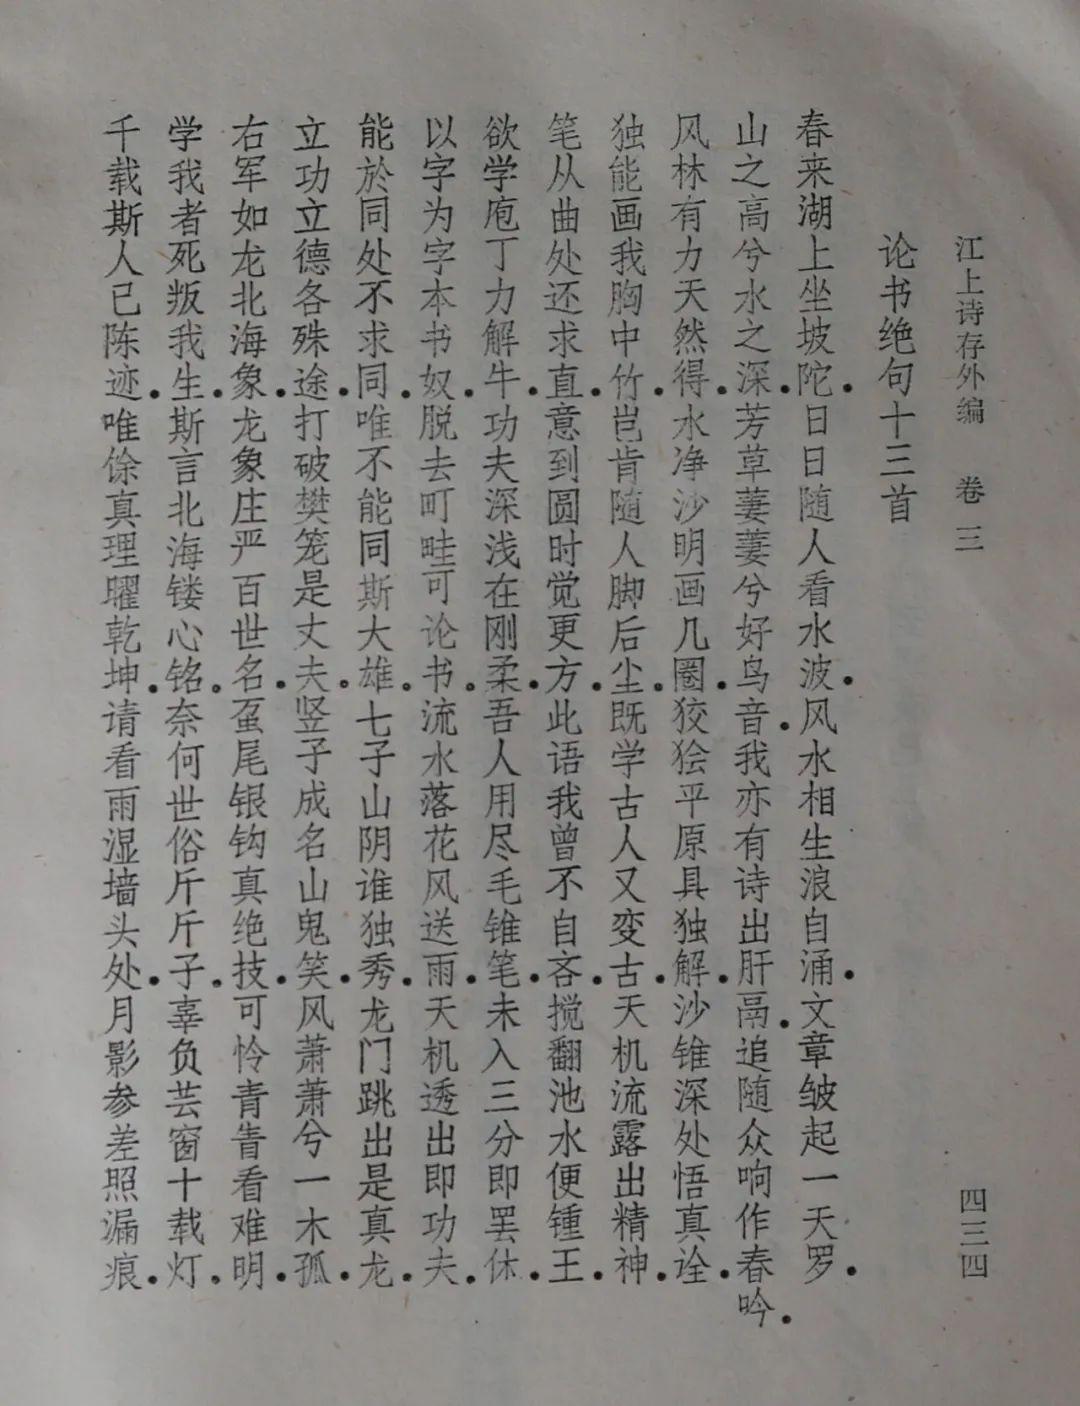 江上诗存外编 卷三 四三四
论书绝句十三首
春来湖上坐坡陀。日日随人看水波。风水相生浪自涌。文章皱起一天罗。
山之高兮水之深。芳草萋萋兮好鸟音。我亦有诗出肝鬲。追随众响作春吟。
风林有力天然得。水净沙明画几圈。狡狯平原具独解。沙锥深处悟真诠。
独能画我胸中竹。岂肯随人脚后尘。既学古人又变古。天机流露出精神。
笔从曲处还求直。意到圆时觉更方。此语我曾不自吝。搅翻池水便锺王。
欲学庖丁力解牛。功夫深浅在刚柔。吾人用尽毛锥笔。未入三分即罢休。
以字为字本书奴。脱去町畦可论书。流水落花风送雨。天机透出即功夫。
能於同处不求同。唯不能同斯大雄。七子山阴谁独秀。龙门跳出是真龙。
立功立德各殊途。打破樊笼是丈夫。竖子成名山鬼笑。风萧萧兮一木孤。
右军如龙北海象。龙象庄严百世名。虿尾银钩真绝技。可怜青眚看难明。
学我者死叛我生。斯言北海镂心铭。奈何世俗斤斤子。辜负芸窗十载灯。
千载斯人已陈迹。唯馀真理曜乾坤。请看雨湿墙头处。月影参差照漏痕。